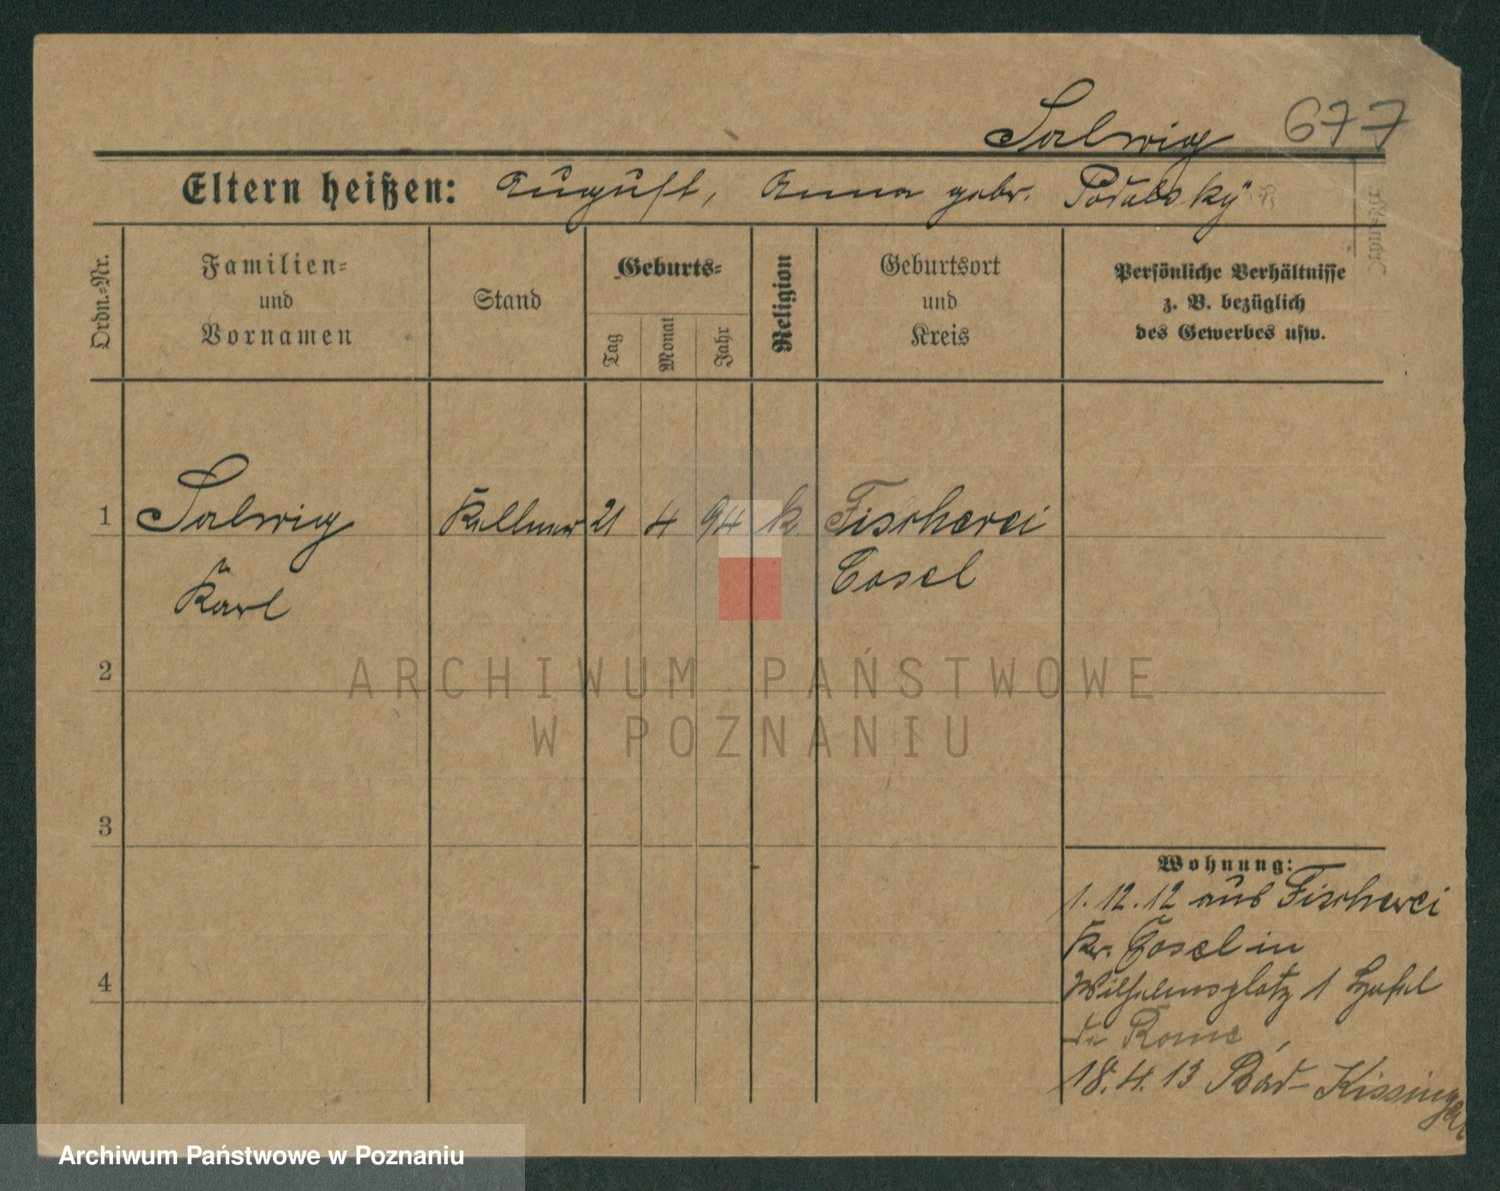 677
Salwig
Eltern heißen: August, Anna gebr. Podulsky
Ordn.-Nr.
Familien-
und
Vornamen
Stand
Geburts-
Tag
Monat
Jahr
Religion
Geburtsort
und
Kreis
Persönliche Verhältnisse
z. B. bezüglich
des Gewerbes usw.
1 Salwig Kellner 21 4 94 k. Fischerei
Karl Cosel
2
3
4
Wohnung:
1.12.12 aus Fischerei
Kr. Cosel in
Wilhelmsplatz 1 Hotel
de Rome,
18.4.13 Bad-Kissingen
ARCHIWUM PAŃSTWOWE
W POZNANIU
Archiwum Państwowe w Poznaniu